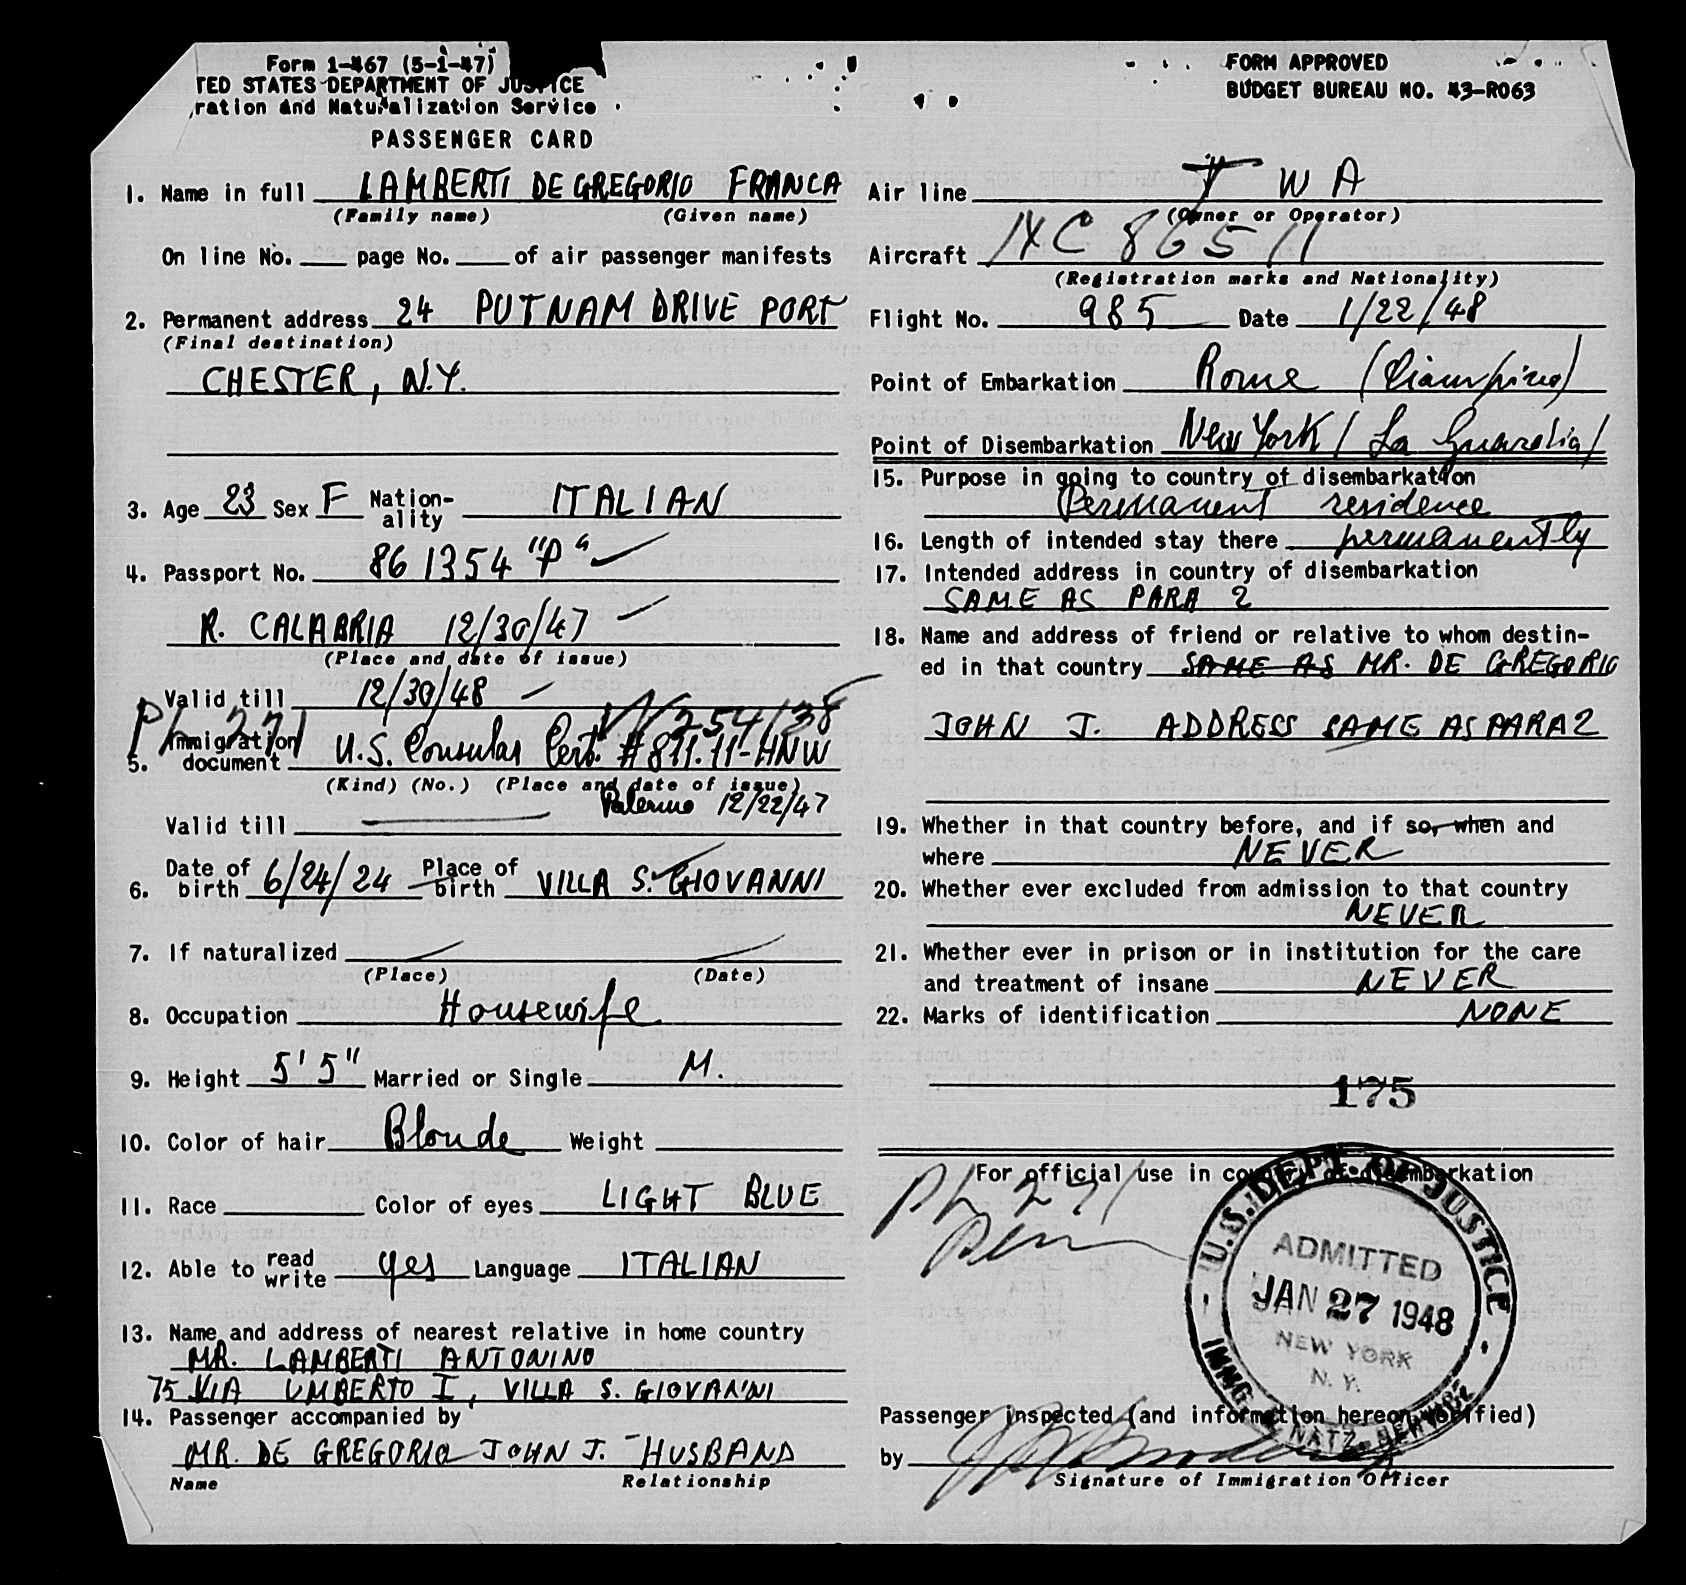 Form 1-467 (5-1-47)
TED STATES DEPARTMENT OF JUSTICE
ration and Naturalization Service
PASSENGER CARD
FORM APPROVED
BUDGET BUREAU NO. 43-R063
1. Name in full LAMBERTI DE GREGORIO FRANCA
(Family name) (Given name)
On line No. page No. of air passenger manifests
2. Permanent address 24 PUTNAM DRIVE PORT
(Final destination)
CHESTER, N.Y.
3. Age 23 Sex F Nation-ality ITALIAN
4. Passport No. 861354 "P"
R. CALABRIA 12/30/47
(Place and date of issue)
Valid till 12/30/48
PL 271 V/254/38
5. Immigration document U.S. Consular Cert. # 811.11-HNW
(Kind) (No.) (Place and date of issue)
Palermo 12/22/47
Valid till
6. Date of birth 6/24/24 Place of birth VILLA S. GIOVANNI
7. If naturalized
(Place) (Date)
8. Occupation Housewife
9. Height 5' 5" Married or Single M.
10. Color of hair Blonde Weight
11. Race Color of eyes LIGHT BLUE
12. Able to read write yes Language ITALIAN
13. Name and address of nearest relative in home country
MR. LAMBERTI ANTONINO
75 VIA UMBERTO I, VILLA S. GIOVANNI
14. Passenger accompanied by
MR. DE GREGORIO JOHN J. - HUSBAND
Name Relationship
Air line T W A
(Owner or Operator)
Aircraft
(Registration marks and Nationality)
Flight No. 985 Date 1/22/48
Point of Embarkation Rome (Ciampino)
Point of Disembarkation New York / La Guardia/
15. Purpose in going to country of disembarkation
Permanent residence
16. Length of intended stay there permanently
17. Intended address in country of disembarkation
SAME AS PARA 2
18. Name and address of friend or relative to whom destin-
ed in that country SAME AS MR. DE GREGORIO
JOHN J. ADDRESS SAME AS PARA 2
19. Whether in that country before, and if so, when and
where NEVER
20. Whether ever excluded from admission to that country
NEVER
21. Whether ever in prison or in institution for the care
and treatment of insane NEVER
22. Marks of identification NONE
175
For official use in country of disembarkation
PL 271
U.S. DEPT. OF JUSTICE
ADMITTED
JAN 27 1948
NEW YORK
N. Y.
IMMG. & NATZ. SERVICE
Passenger inspected (and information hereon verified)
by
Signature of Immigration Officer